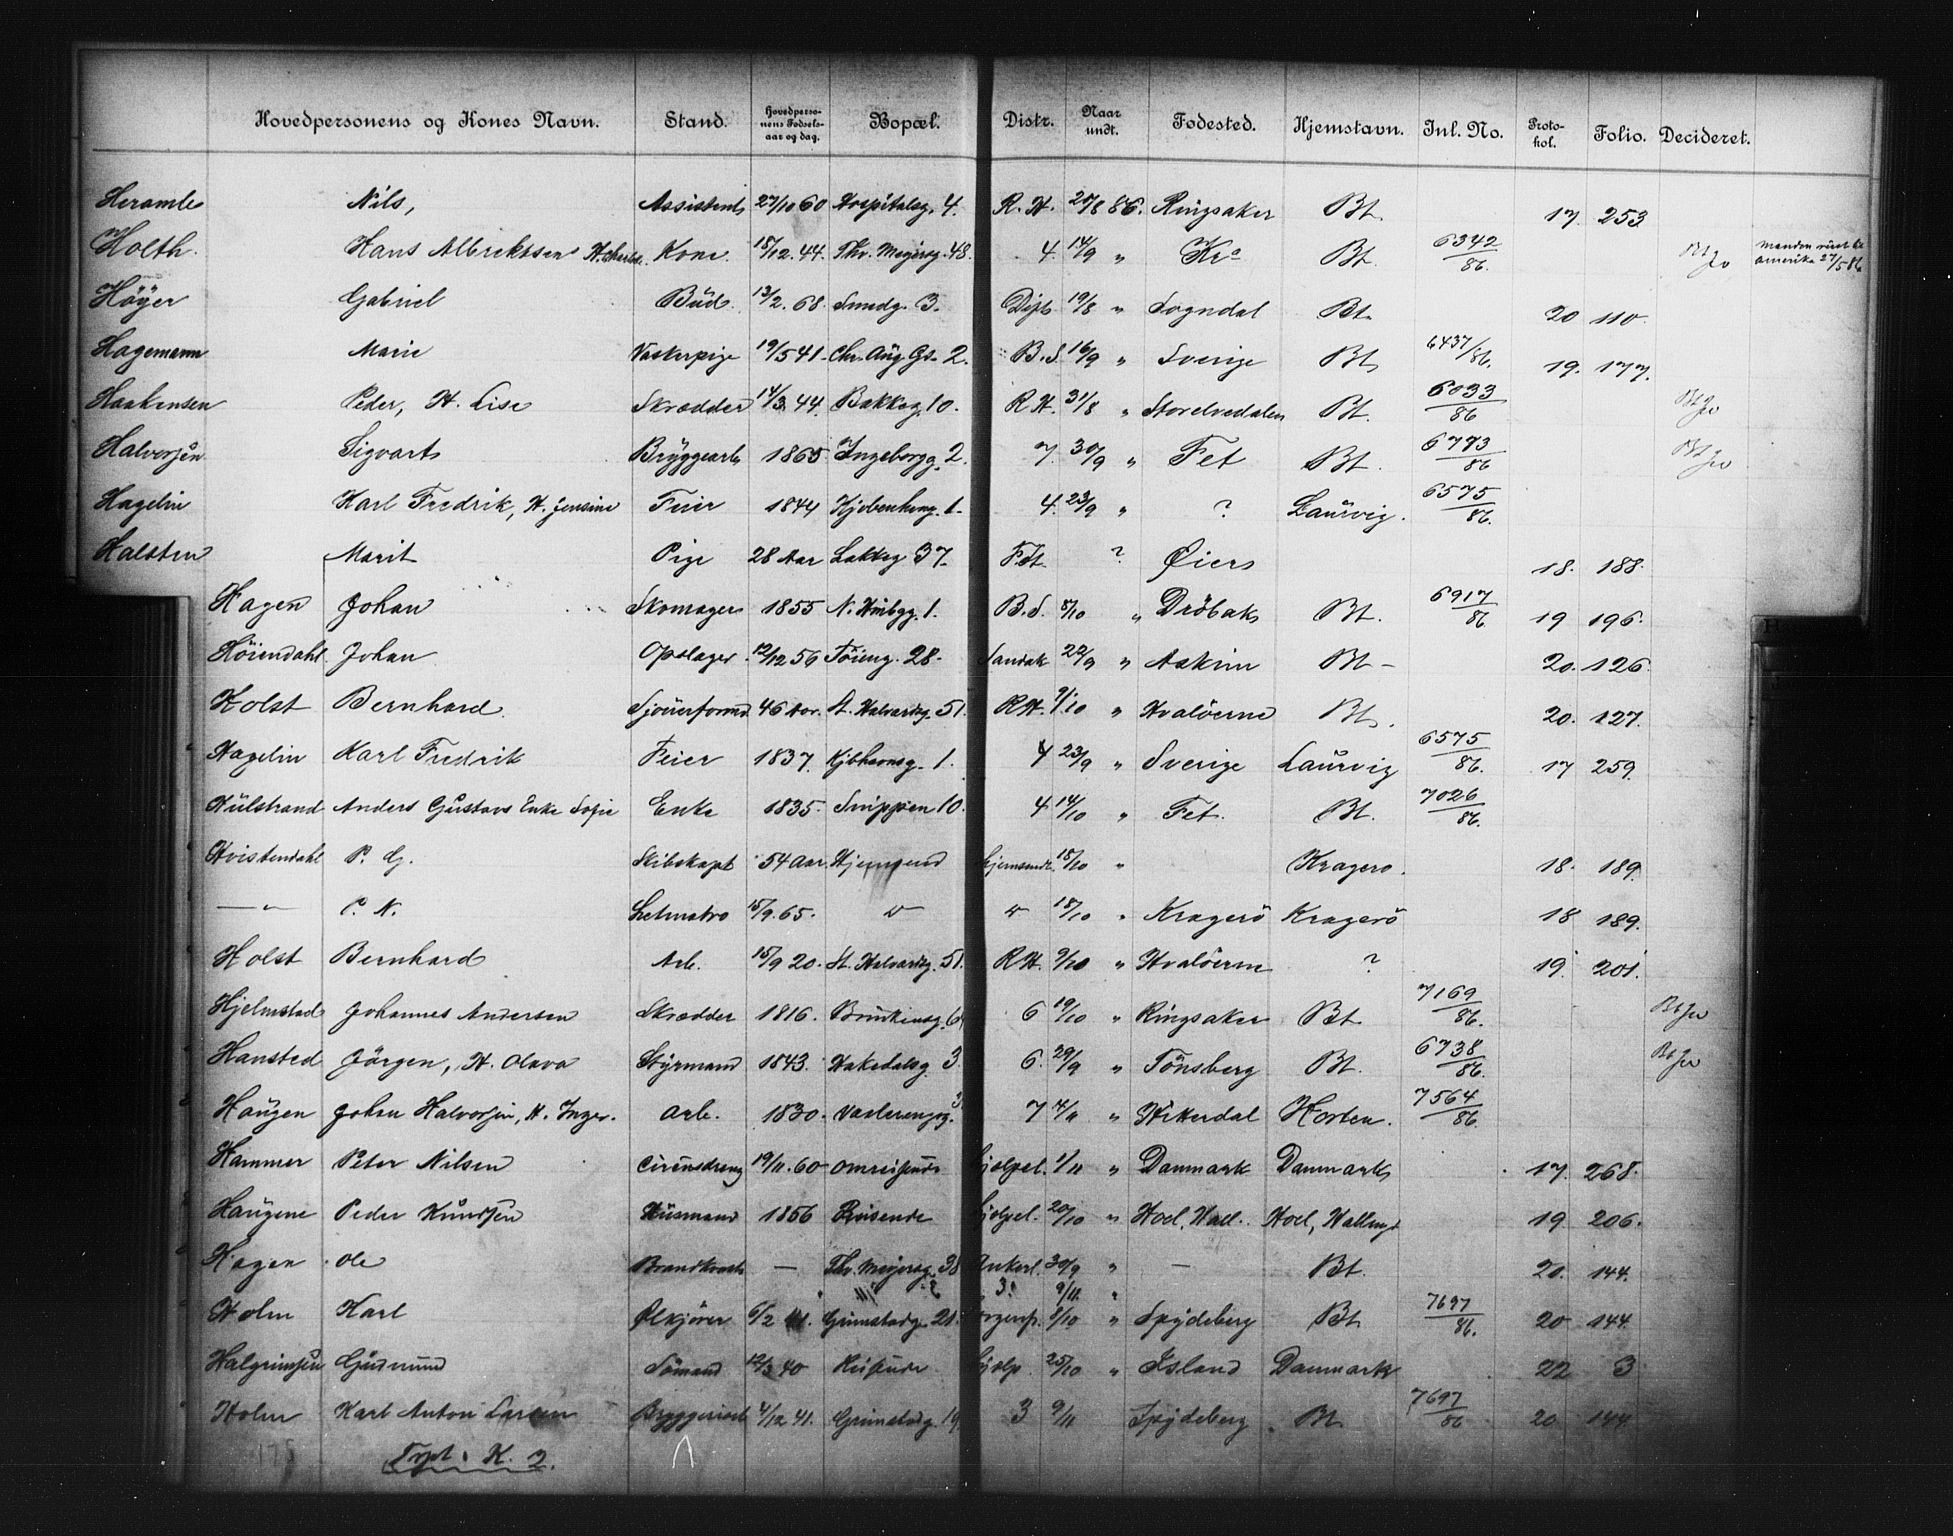 Hovedpersonens og Kones Navn. Stand. Hovedpersonens Fødselsaar og dag. Bopæl. Distr. Naar undt. Fødested. Hjemstavn. Inl. No. Protokol. Folio. Decideret.
Heramle Nils, Assistent 27/10 60 Hospitalsg. 4. R. H. 20/8 86. Ringsaker Bt. 17. 253
Holth. Hans Albrektsen Kone. 15/12. 44. Thv. Meyersg. 48. 4. 14/9 " Kra Bt. 6342/86. Bt manden reist til amerika 27/5 86
Höyer Gabriel Bud. 13/2. 68. Smedg. 3. Dipt. 19/8 " Sogndal Bt. 20 110.
Hagemann Marie Vaskerpige 19/5 41. Chr. Aug Gs. 2. B. S. 16/9 " Sverige Bt 6437/86. 19. 177.
Haakensen Peder, H. Lise Skrædder 14/3 44. Bakkeg. 10. R. H. 31/8 " Storelvedalen Bt. 6033/86 Bt
Halvorsen Sigvart Bryggearb 1865 Ingeborgg. 2. 7. 30/9 " Fet Bt. 6773/86 Bt
Hagelin Karl Fredrik, H. Jensine Feier 1844 Kjøbenhavng. 1. 4. 23/9 " ? Laurvig. 6575/86.
Halsten Marit Pige 28 Aar Lakkeg 37. Fdt. ? Øiers 18. 188.
Hagen Johan Skomager 1855 N. 1. B. S. 8/10 " Dröbak Bt. 6917/86. 19 196.
Höiendahl. Johan Opslager 12/12 56 Töieng. 28. Sandak 22/9 " Askim Bt - 20. 126.
Holst Bernhard Sjouerformd. 46 Aar. St. Halvardsg. 51. R H. 9/10 " Hvalöerne Bt. 20. 127.
Hagelin Karl Fredrik Feier 1837. Kjbhavnsg. 1. 4 23/9 " Sverige Laurvig 6575/86. 17 259.
Hulstrand Anders Gustavs Enke Sofie Enke 1835. Snippen 10. 4 14/10 " Fet. Bt. 7026/86.
Hvistendahl P. G. Skibskapt 54 Aar. 18/10 " Kragero. 18. 189.
— " — P. N. Letmatro 15/9. 65. " " 18/10 " Kragerö Kragerö 18 189.
Holst Bernhard Arb. 15/9 20. St. Halvardsg. 51. R H. 9/10 " Hvalöerne ? 19. 201.
Hjelmstad Johannes Andersen Skrædder 1816. 6 19/10 " Ringsaker Bt 7169/86. Bt
Hansted Jörgen, H. Olava Styrmand 1843. Hakedalsg 3. 6. 29/9 " Tönsberg Bt. 6738/86. Bt
Haugen Johan Halvorsen, H. Inger. Arb. 1830. Vaalerengg. 3 7 4/11 " Horten. 7564/86.
Hammer Peter Nilsen Cirkusdreng 19/11. 60 omreisende 1/11 " Danmark Danmark 17. 268.
Haugene Peder Knudsen Husmand 1856 Reisende 20/10 " Hoel, Hall.. Hoel, 19 206.
Hagen Ole Thv. Meyersg. 38 Ankerl. 30/9 " — Bt. 20. 144.
3. 9/11. "
Holm Karl Ølkjører 6/2 41. Grimstadg. 21. 8/10 " Spydeberg Bt 7697/86. 20 144.
Halgrimsen Gudmund Sömand 12/3 40 Reisende 25/10 " Island Danmark 22 3
Holm Karl Anton Larsen Bryggeriarb 4/12 41. Grimstadg. 19 3 9/11 Spydeberg Bt. 7697/86 20 144
175 H. 2.
H